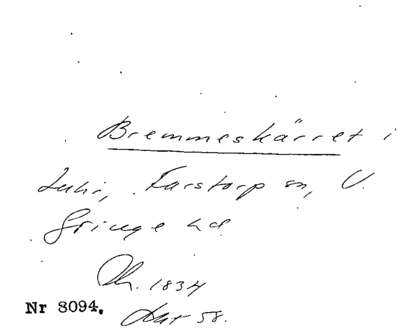 Bremmeskärret i
Luhr, Farstorp sn, V.
Göinge hd
Ch. 1834
Nr 8094. Akt 58.